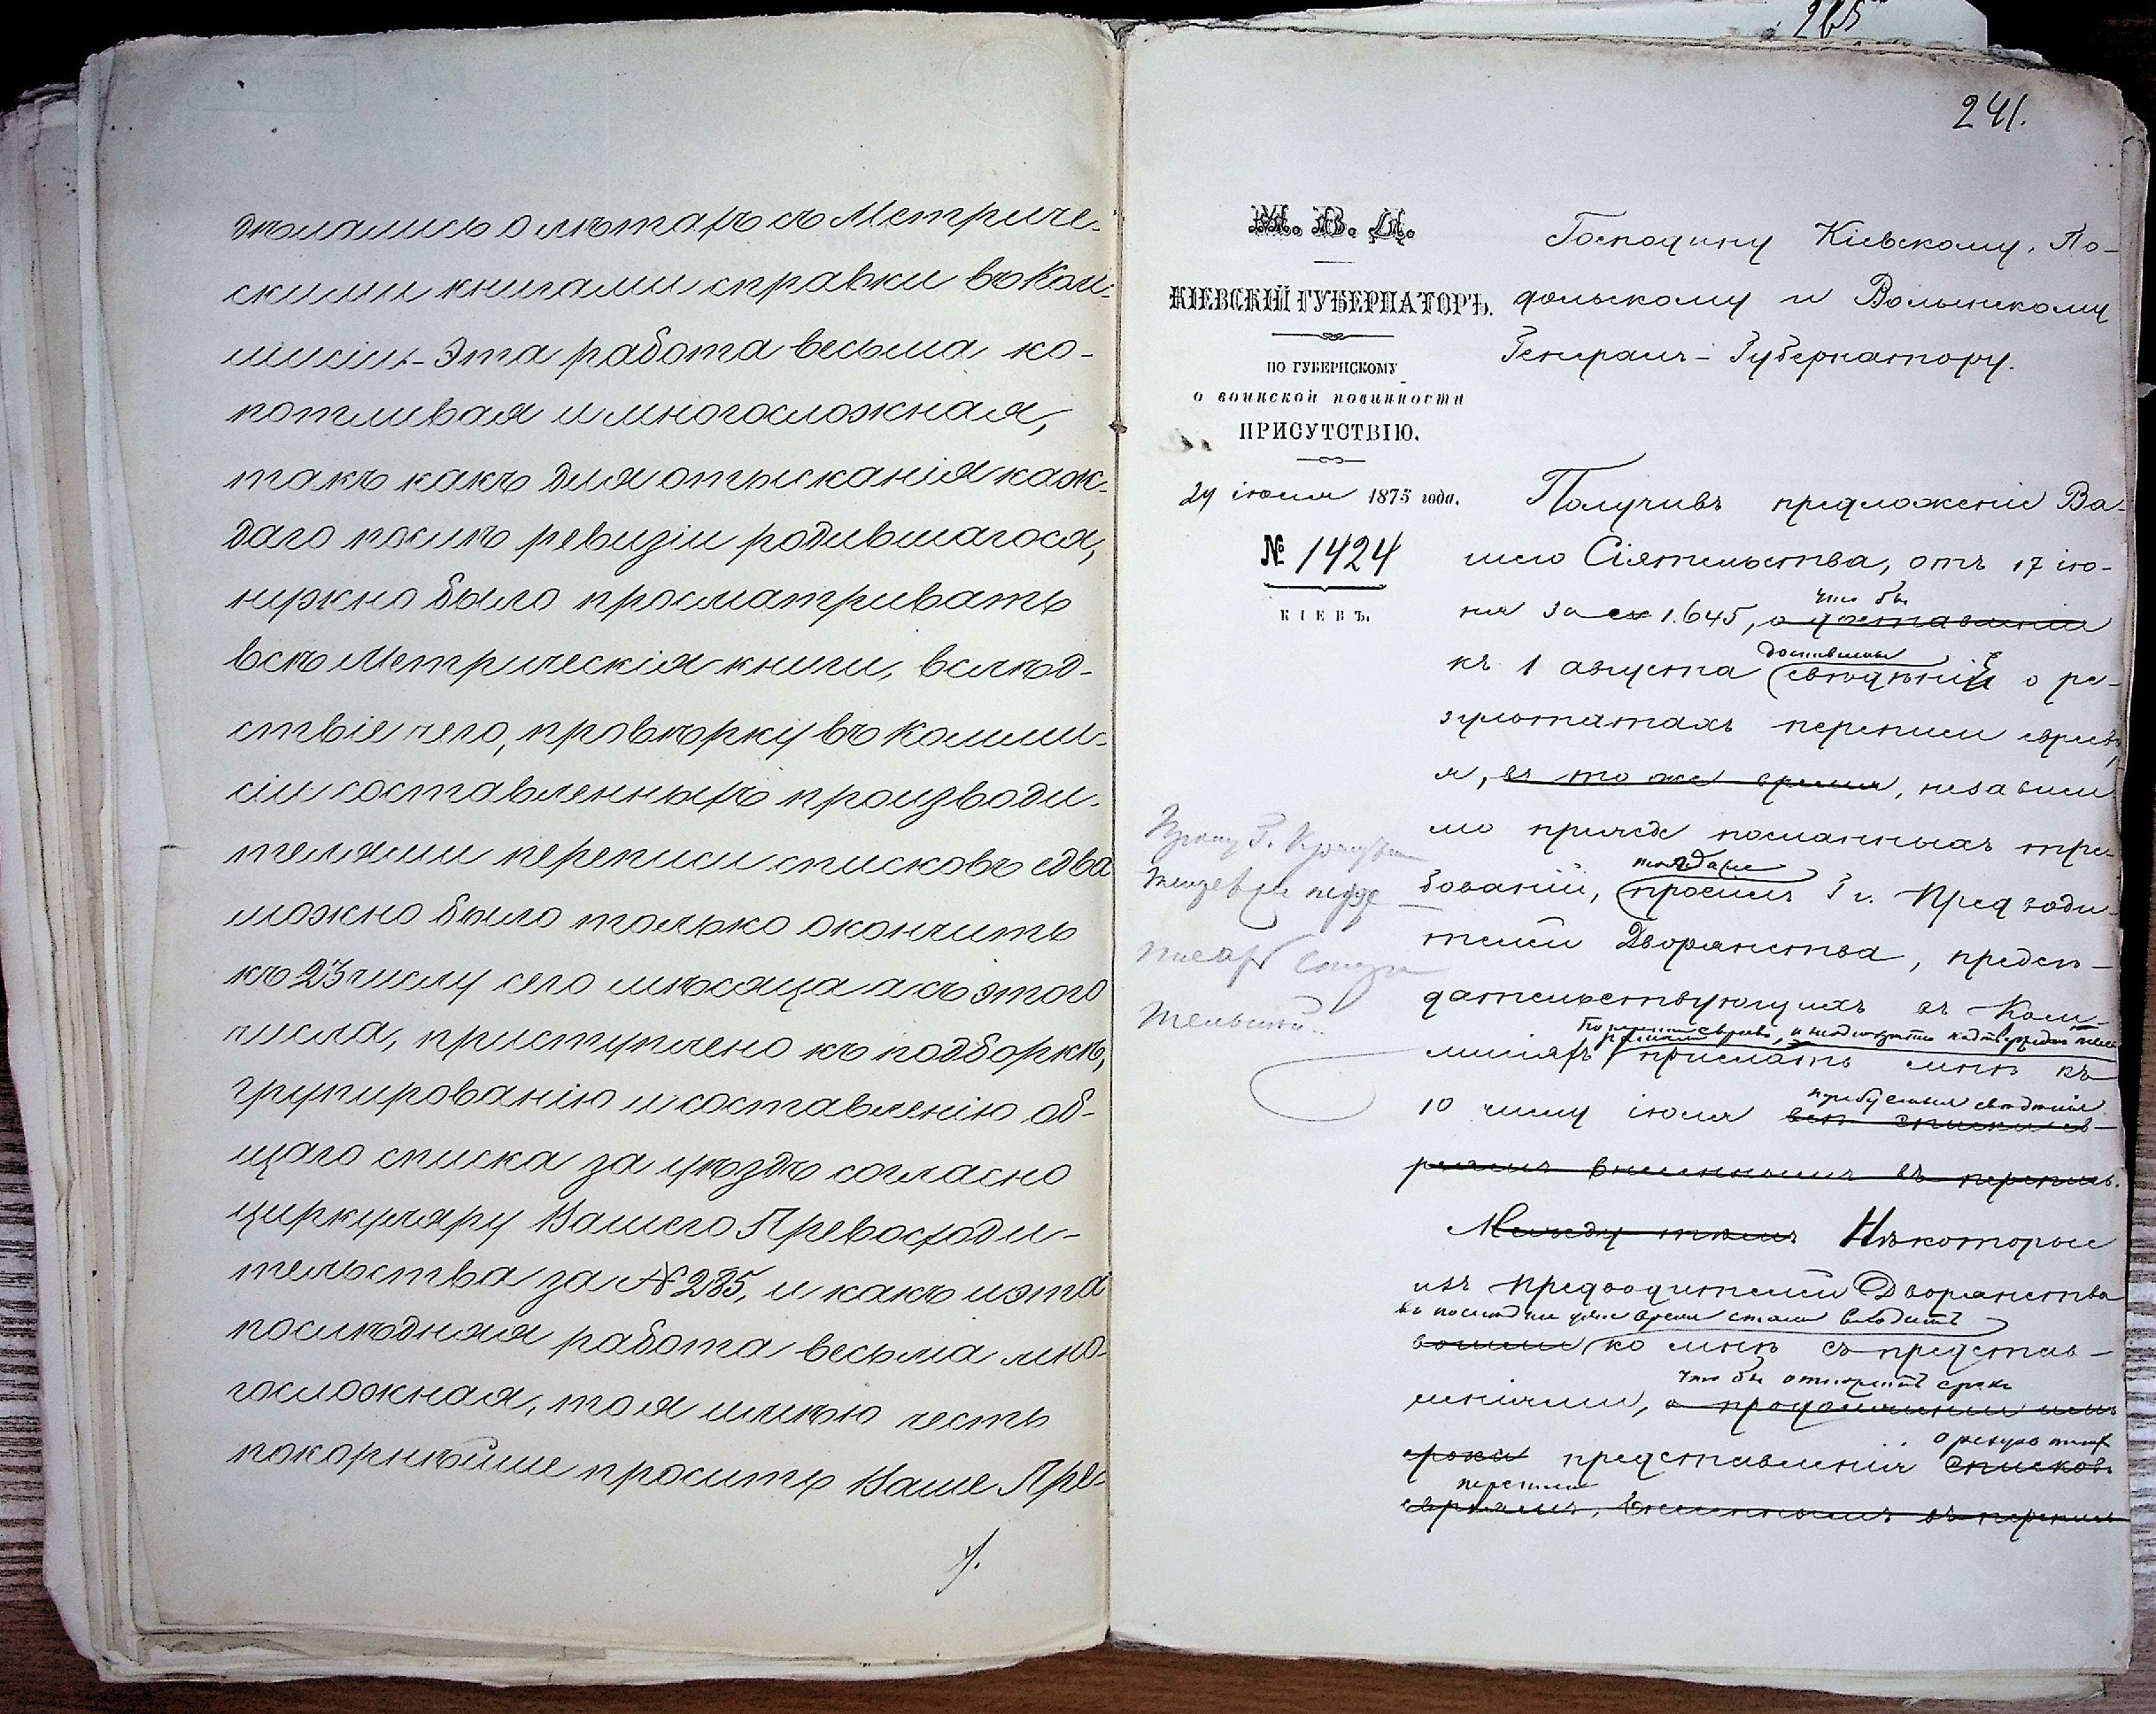 дѣлались о лѣтахъ съ Метриче-
скими книгами справки въ Ком-
мисіи. Эта работа весьма ко-
потливая и многосложная,
такъ какъ для отысканія каж-
даго послѣ ревизіи родившагося,
нужно было просматривать
всѣ Метрическія книги, вслѣд-
ствіе чего, провѣрку въ Комми-
сіи составленныхъ производи-
телями переписи списковъ едва
можно было только окончить
къ 23 числу сего мѣсяца а съ этого
числа, приступлено къ подборкѣ,
групированію и составленію об-
щаго списка за уѣздъ согласно
циркуляру Вашего Превосходи-
тельства за № 285, и какъ и эта
послѣдняя работа весьма мно-
госложная, то я имѣю честь
покорнѣйше просить Ваше Пре-
265
241.
М. В. Д.
КІЕВСКІЙ ГУБЕРНАТОРЪ.
ПО ГУБЕРНСКОМУ
о воинской повинности
ПРИСУТСТВІЮ.
29 іюля 1875 года.
№ 1424
КІЕВЪ.
Господину Кіевскому, По-
дольскому и Волынскому
Генералъ-Губернатору.
Получивъ предложеніе Ва-
шего Сіятельства, отъ 17 ію-
что бы
ня за № 1.645, о доставленіи
доставлены
къ 1 августа свѣдѣній о ре-
зультатахъ переписи евреевъ,
я, въ то же время, независи
мо прежде посланныхъ тре-
тогда же
бованій, просилъ Гг. Предводи-
телей Дворянства, предсѣ-
дательствующихъ въ Ком-
мисіяхъ прислать мнѣ къ
требуемыя свѣдѣнія
10 числу іюля всѣ списки ев-
реямъ внесеннымъ въ перепись.
Между тѣмъ Нѣкоторые
изъ Предводителей Дворянства
въ последнее уже время стали входить
вошли ко мнѣ съ представ-
что бы отсрочить срокъ
леніями, о продолженіи имъ
о результат
срока представленія списковъ
переписи
евреямъ, внесеннымъ въ перепись